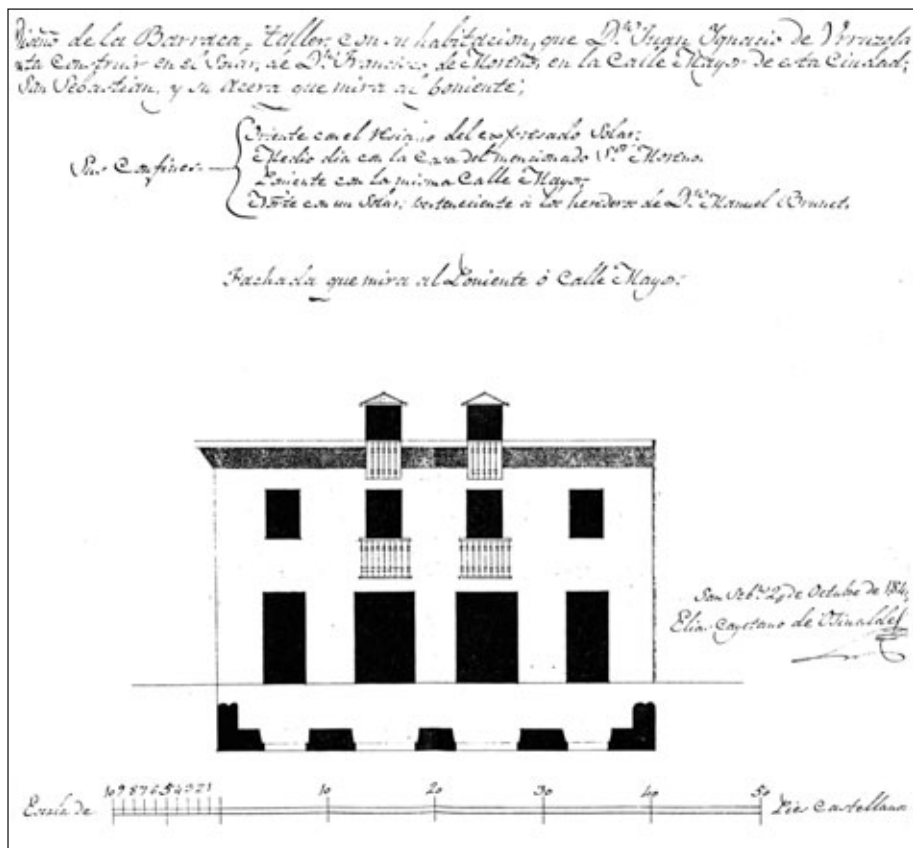 Diseño de la Barraca, Taller, con su habitacion, que D.ⁿ Juan Ygnacio de Urruzola
Construir en el Solar, de D.ⁿ Francisco de Moreno, en la Calle Mayor de esta Ciudad,
San Sebastian, y su acera que mira al Poniente;
Sus Confines
Oriente con el del expresado Solar;
Medio dia con la Casa del mencionado S.ᵒʳ Moreno.
Poniente con la misma Calle Mayor;
Norte con un Solar, perteneciente á los herederos de D.ⁿ Manuel Brunet.
Fachada que mira al Poniente ó Calle Mayor.
San Seb.ⁿ 29 de Octubre de 181
Elias Cayetano de Osinalde
10 9 8 7 6 5 4 3 2 1 10 20 30 40 50
Escala de Pies Castellanos